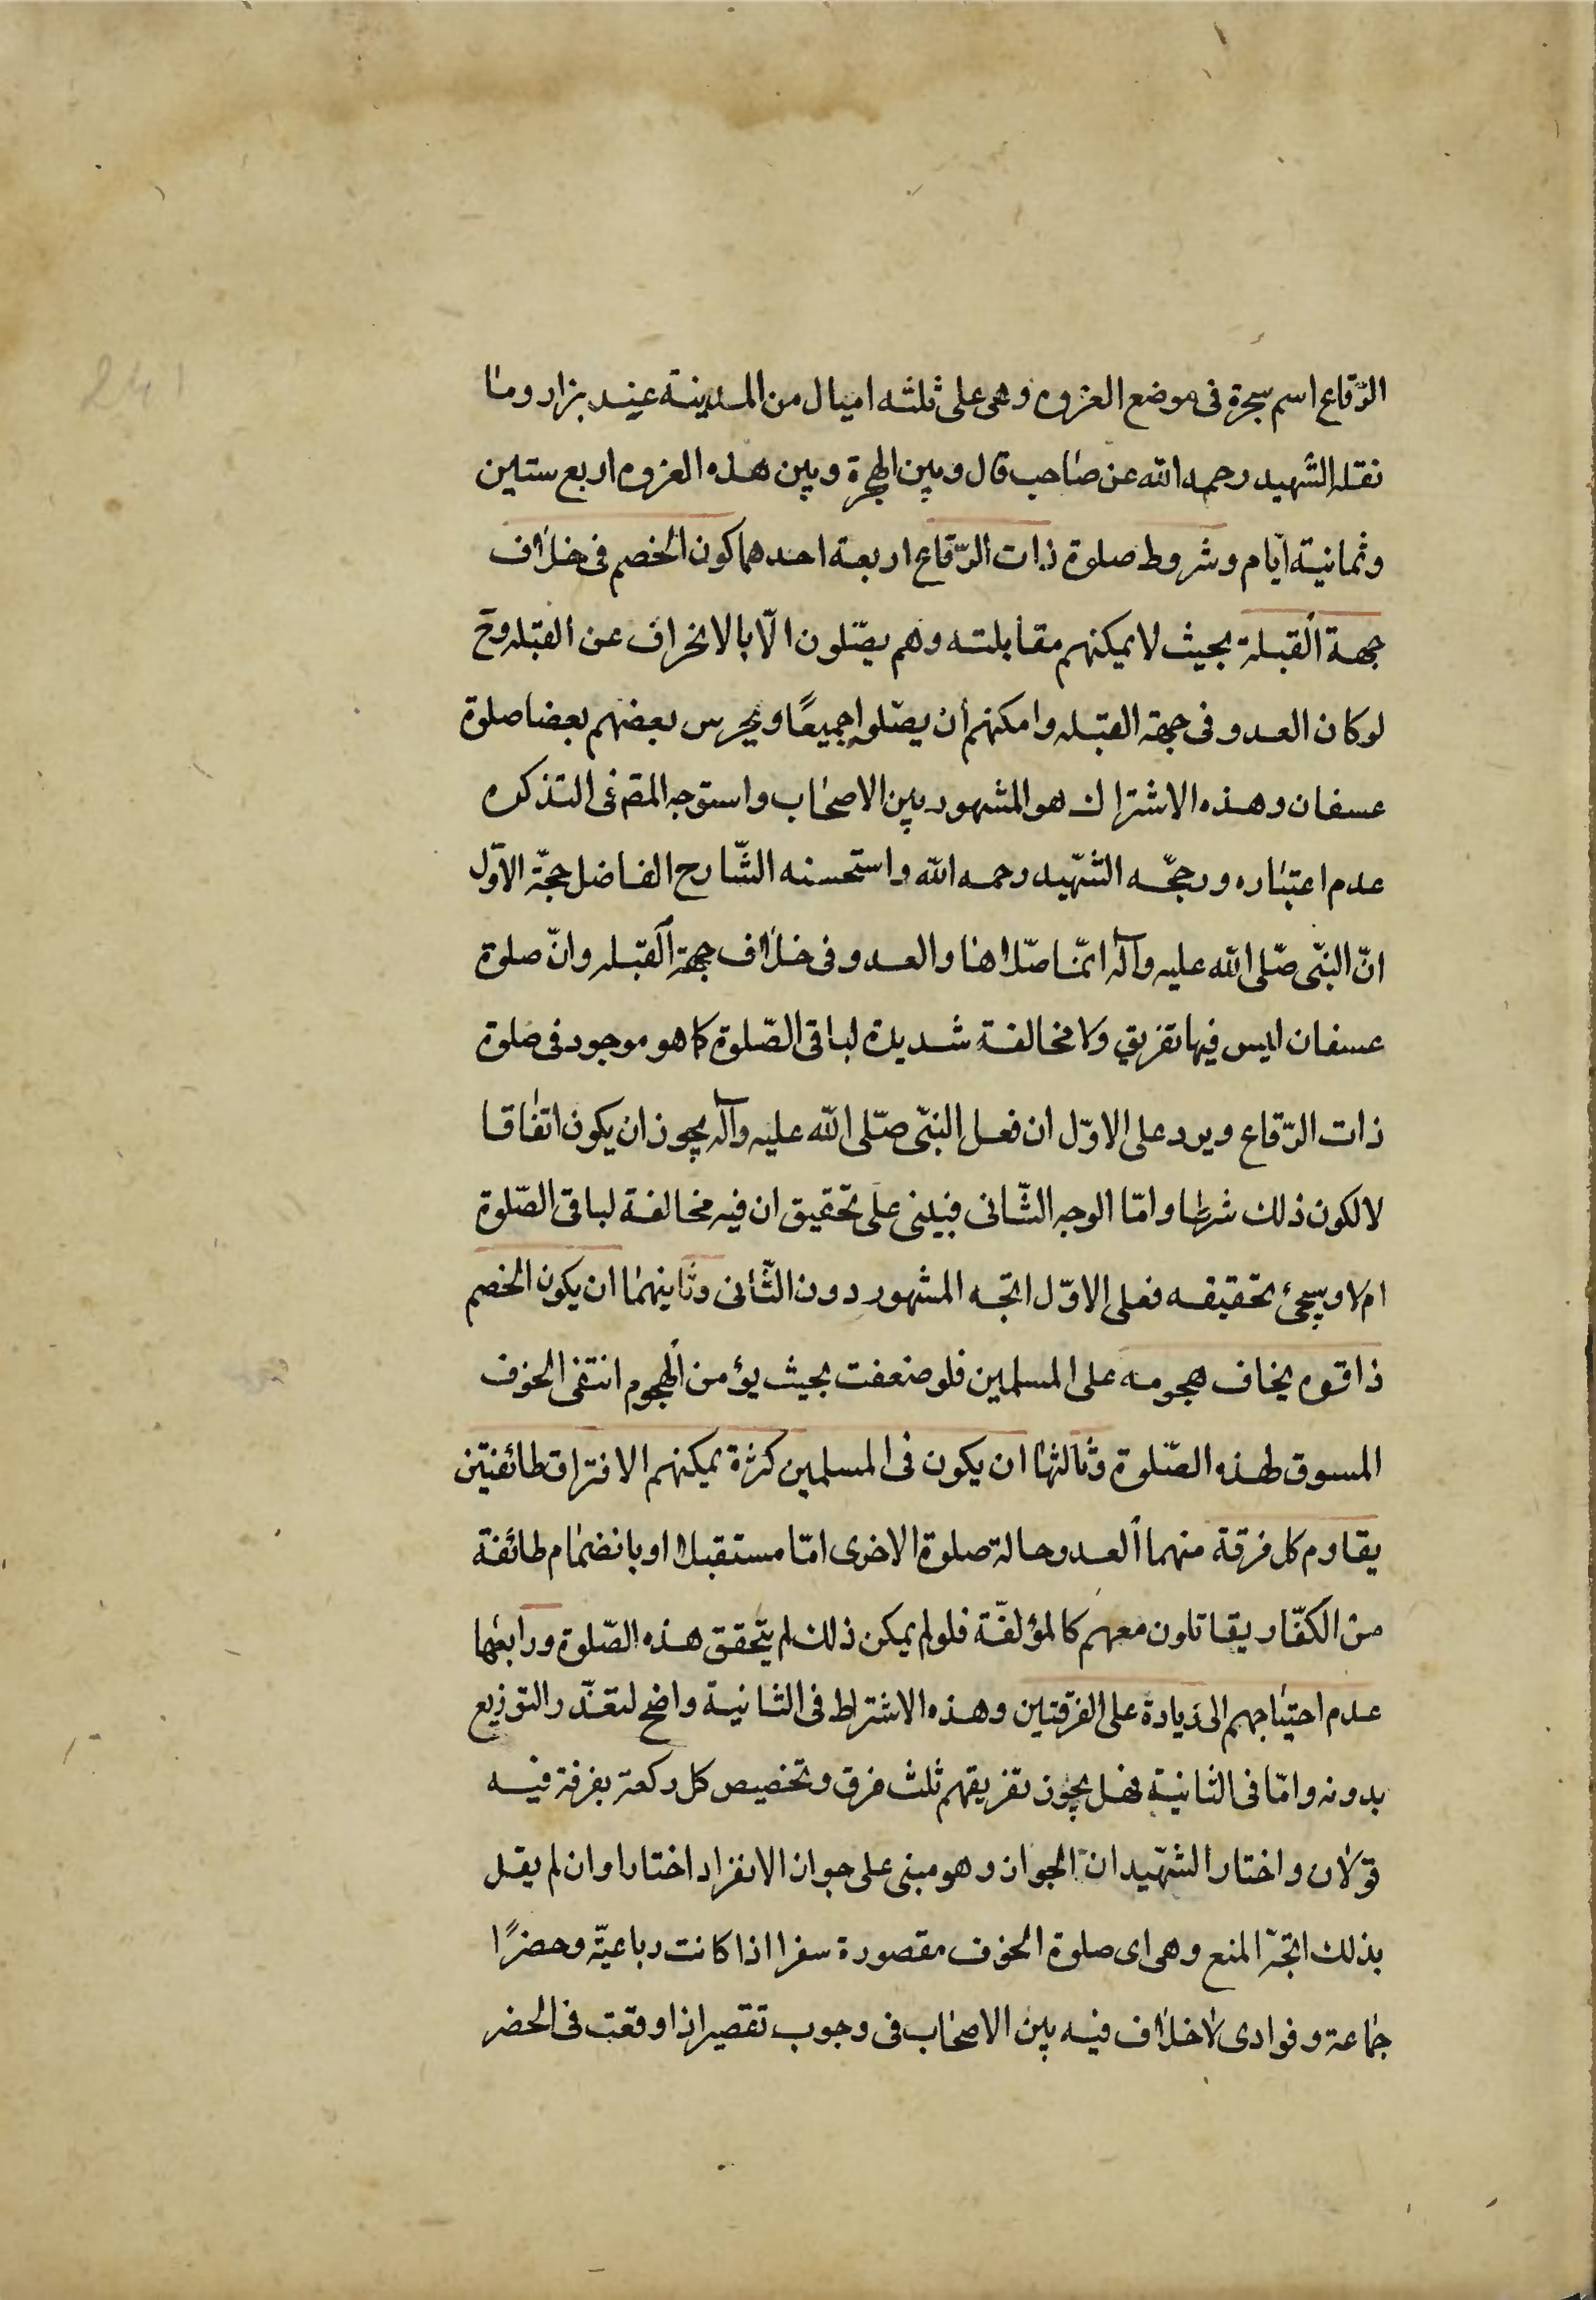 الرّقاع اسم سجرة فى موضع الغزوه وهى على ثلثه اميال من المدينة عند بزار وما
نقله الشهيد رحمه الله عن صاحب قال وبين الهجرة وبين هذه الغزوه اربع ستين
وثمانية ايام وشروط صلوة ذات الرّقاع اربعة احدهما كون الخصم فى خلاف
جهة القبلة بحيث لا يمكنهم مقابلته وهم يصّلون الّا بالانحراف عن القبله وح
لو كان العدو فى جهة القبله وامكنهم أن يصّلوا جميعًا ويحرس بعضهم بعضا صلوة
عسفان وهذه الاشتراك هو المشهور بين الاصحاب واستوجه المقم فى التذكره
عدم اعتباره ورجحّه الشّهيد رحمه الله واستحسنه الشّارح الفاضل حجّة الاوّل
انّ النبّى صّلى الله عليه وآله انمّا صّلاها والعدو فى خلاف جهة القبله وانّ صلوة
عسفان ليس فيها تفريق ولا مخالفة شديدة لباقى الصّلوة كما هو موجود فى صلوة
ذات الرّقاع ويرد على الاوّل ان فعل النبّى صّلى الله عليه وآله يجوز ان يكون اتفاقا
لا لكون ذلك شرطا وامّا الوجه الثّانى فيبنى على تحقيق ان فيه مخالفة لباقى الصّلوة
ام لا وسيجئ تحقيقه فعلى الاوّل اتجّه المشهور دون الثّانى وثانيهما ان يكون الخصم
ذا قوه يخاف هجومه على المسلمين فلو ضعفت بحيث يؤمن الهجوم انتفى الخوف
المسوق لهذه الصّلوة وثالثها ان يكون فى المسلمين كثرة يمكنهم الافتراق طائفتين
يقاوم كل فرقة منهما العدو حالة صلوة الاخرى امّا مستقبلا او بانضمام طائفة
من الكفّار يقاتلون معهم كالمؤلفّة فلو لم يمكن ذلك لم يتحقق هذه الصّلوة ورابعها
عدم احتياجهم الى زيادة على الفرقتين وهذه الاشتراط فى الثانية واضح لتعذّر التوزيع
بدونه وامّا فى الثانية فهل يجوز تفريقهم ثلث فرق وتخصيص كل ركعة بفرقة فيه
قولان واختار الشهّيدان الجواز وهو مبنى على جواز الانفراد اختارا وان لم يقل
بذلك اتجّه المنع وهى اى صلوة الخوف مقصورة سفرا اذا كانت رباعيّة وحضرًا
جماعة وفوادى لا خلاف فيه بين الاصحاب فى وجوب تقصير اذا وقعت فى الحضر
241